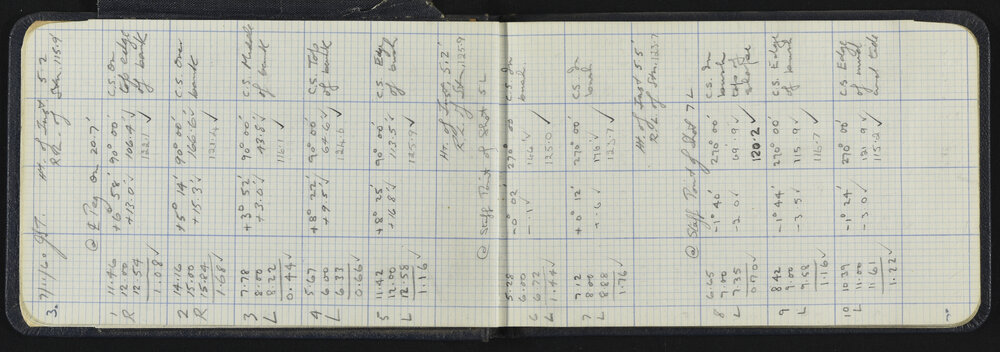 3. 7/11/60 JST. Ht. of Inst 5.2
R.L. of Stn. 115.9
@ ℄ Peg on 20.7'
1 11.46 +6° 58' 90° 00' C.S. On
R 12.00 +13.0 ✓ 106.4 ✓ top edge
12.54 122.1 ✓ of bank
1.08 ✓
2 14.16 +5° 14' 90° 00' C.S. Over
R 15.00 +15.3 ✓ 166.6 ✓ bank
15.84 121.4 ✓
1.68 ✓
3 7.78 +3° 52' 90° 00' C.S. Middle
L 8.00 +3.0 ✓ 43.8 ✓ of bank
8.22 116.1 ✓
0.44 ✓
4 5.67 +8° 22' 90° 00' C.S. Top
L 6.00 +9.5 ✓ 64.6 ✓ of bank
6.33 124.6 ✓
0.66 ✓
5 11.42 +8° 25' 90° 00' C.S. Edge
L 12.00 +16.8 ✓ 113.5 ✓ of bush
12.58 125.9 ✓
1.16 ✓
Ht. of Inst 5.2'
R.L. of Stn. 125.9
@ Staff Point of Shot 5 L
6 5.28 -0° 02' 270° 00' C.S. In
L 6.00 -.1 ✓ 144 ✓ bush.
6.72 125.0 ✓
1.44 ✓
7 7.12 +0° 12' 270° 00' C.S. In
L 8.00 +.6 ✓ 176 ✓ bush
8.88 123.7 ✓
1.76 ✓
Ht of Inst 5.5'
R.L. of Stn. 123.7
@ Staff Point of Shot 7 L
8 6.65 -1° 40' 270° 00' C.S. In
L 7.00 -2.0 ✓ 69.9 ✓ bush
7.35 120.2 ✓ top of slope
0.70 ✓
9 8.42 -1° 44' 270° 00' C.S. Edge
L 9.00 -3.5 ✓ 115.9 ✓ of bush
9.58 116.7 ✓
1.16 ✓
10 10.39 -1° 24' 270° 00' C.S. Edge
L 11.00 -3.0 ✓ 121.9 ✓ of
11.61 115.2 ✓
1.22 ✓